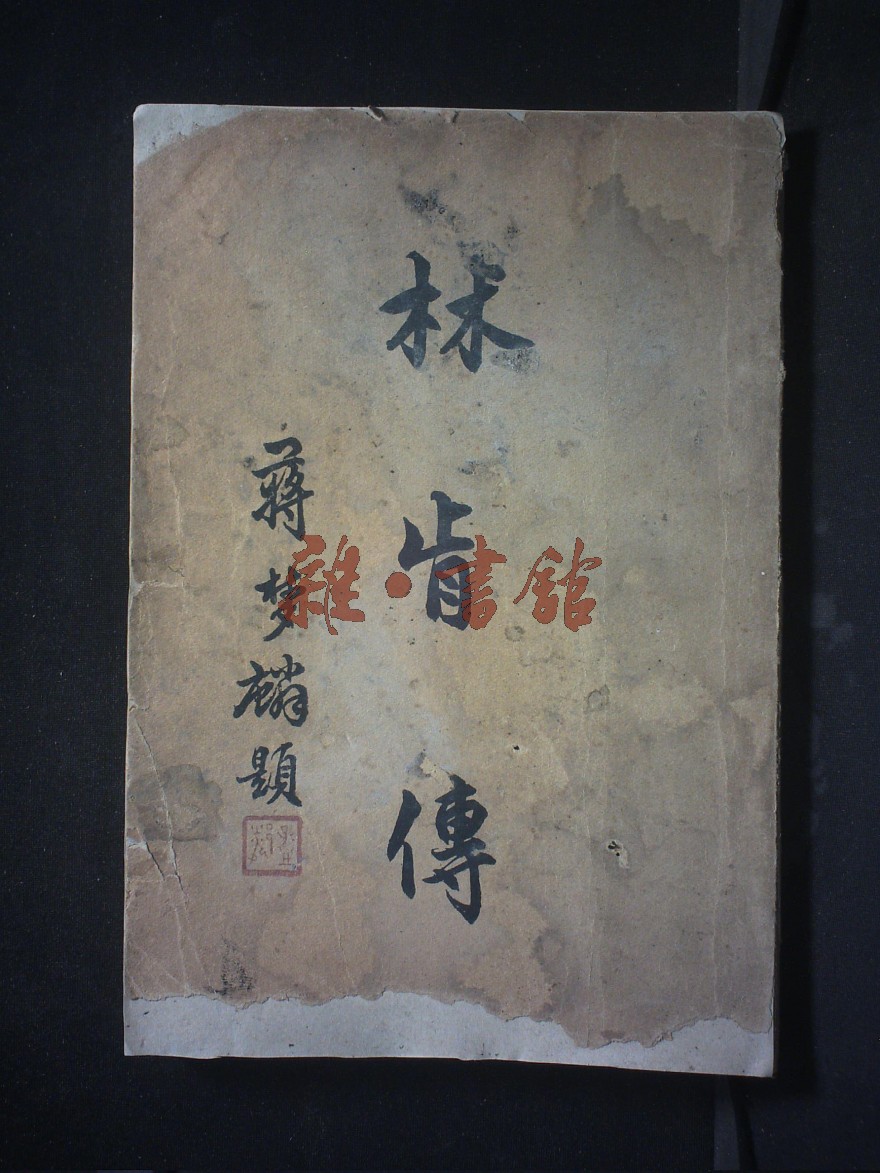 林肯傳
蔣梦麟題
雜·書舘